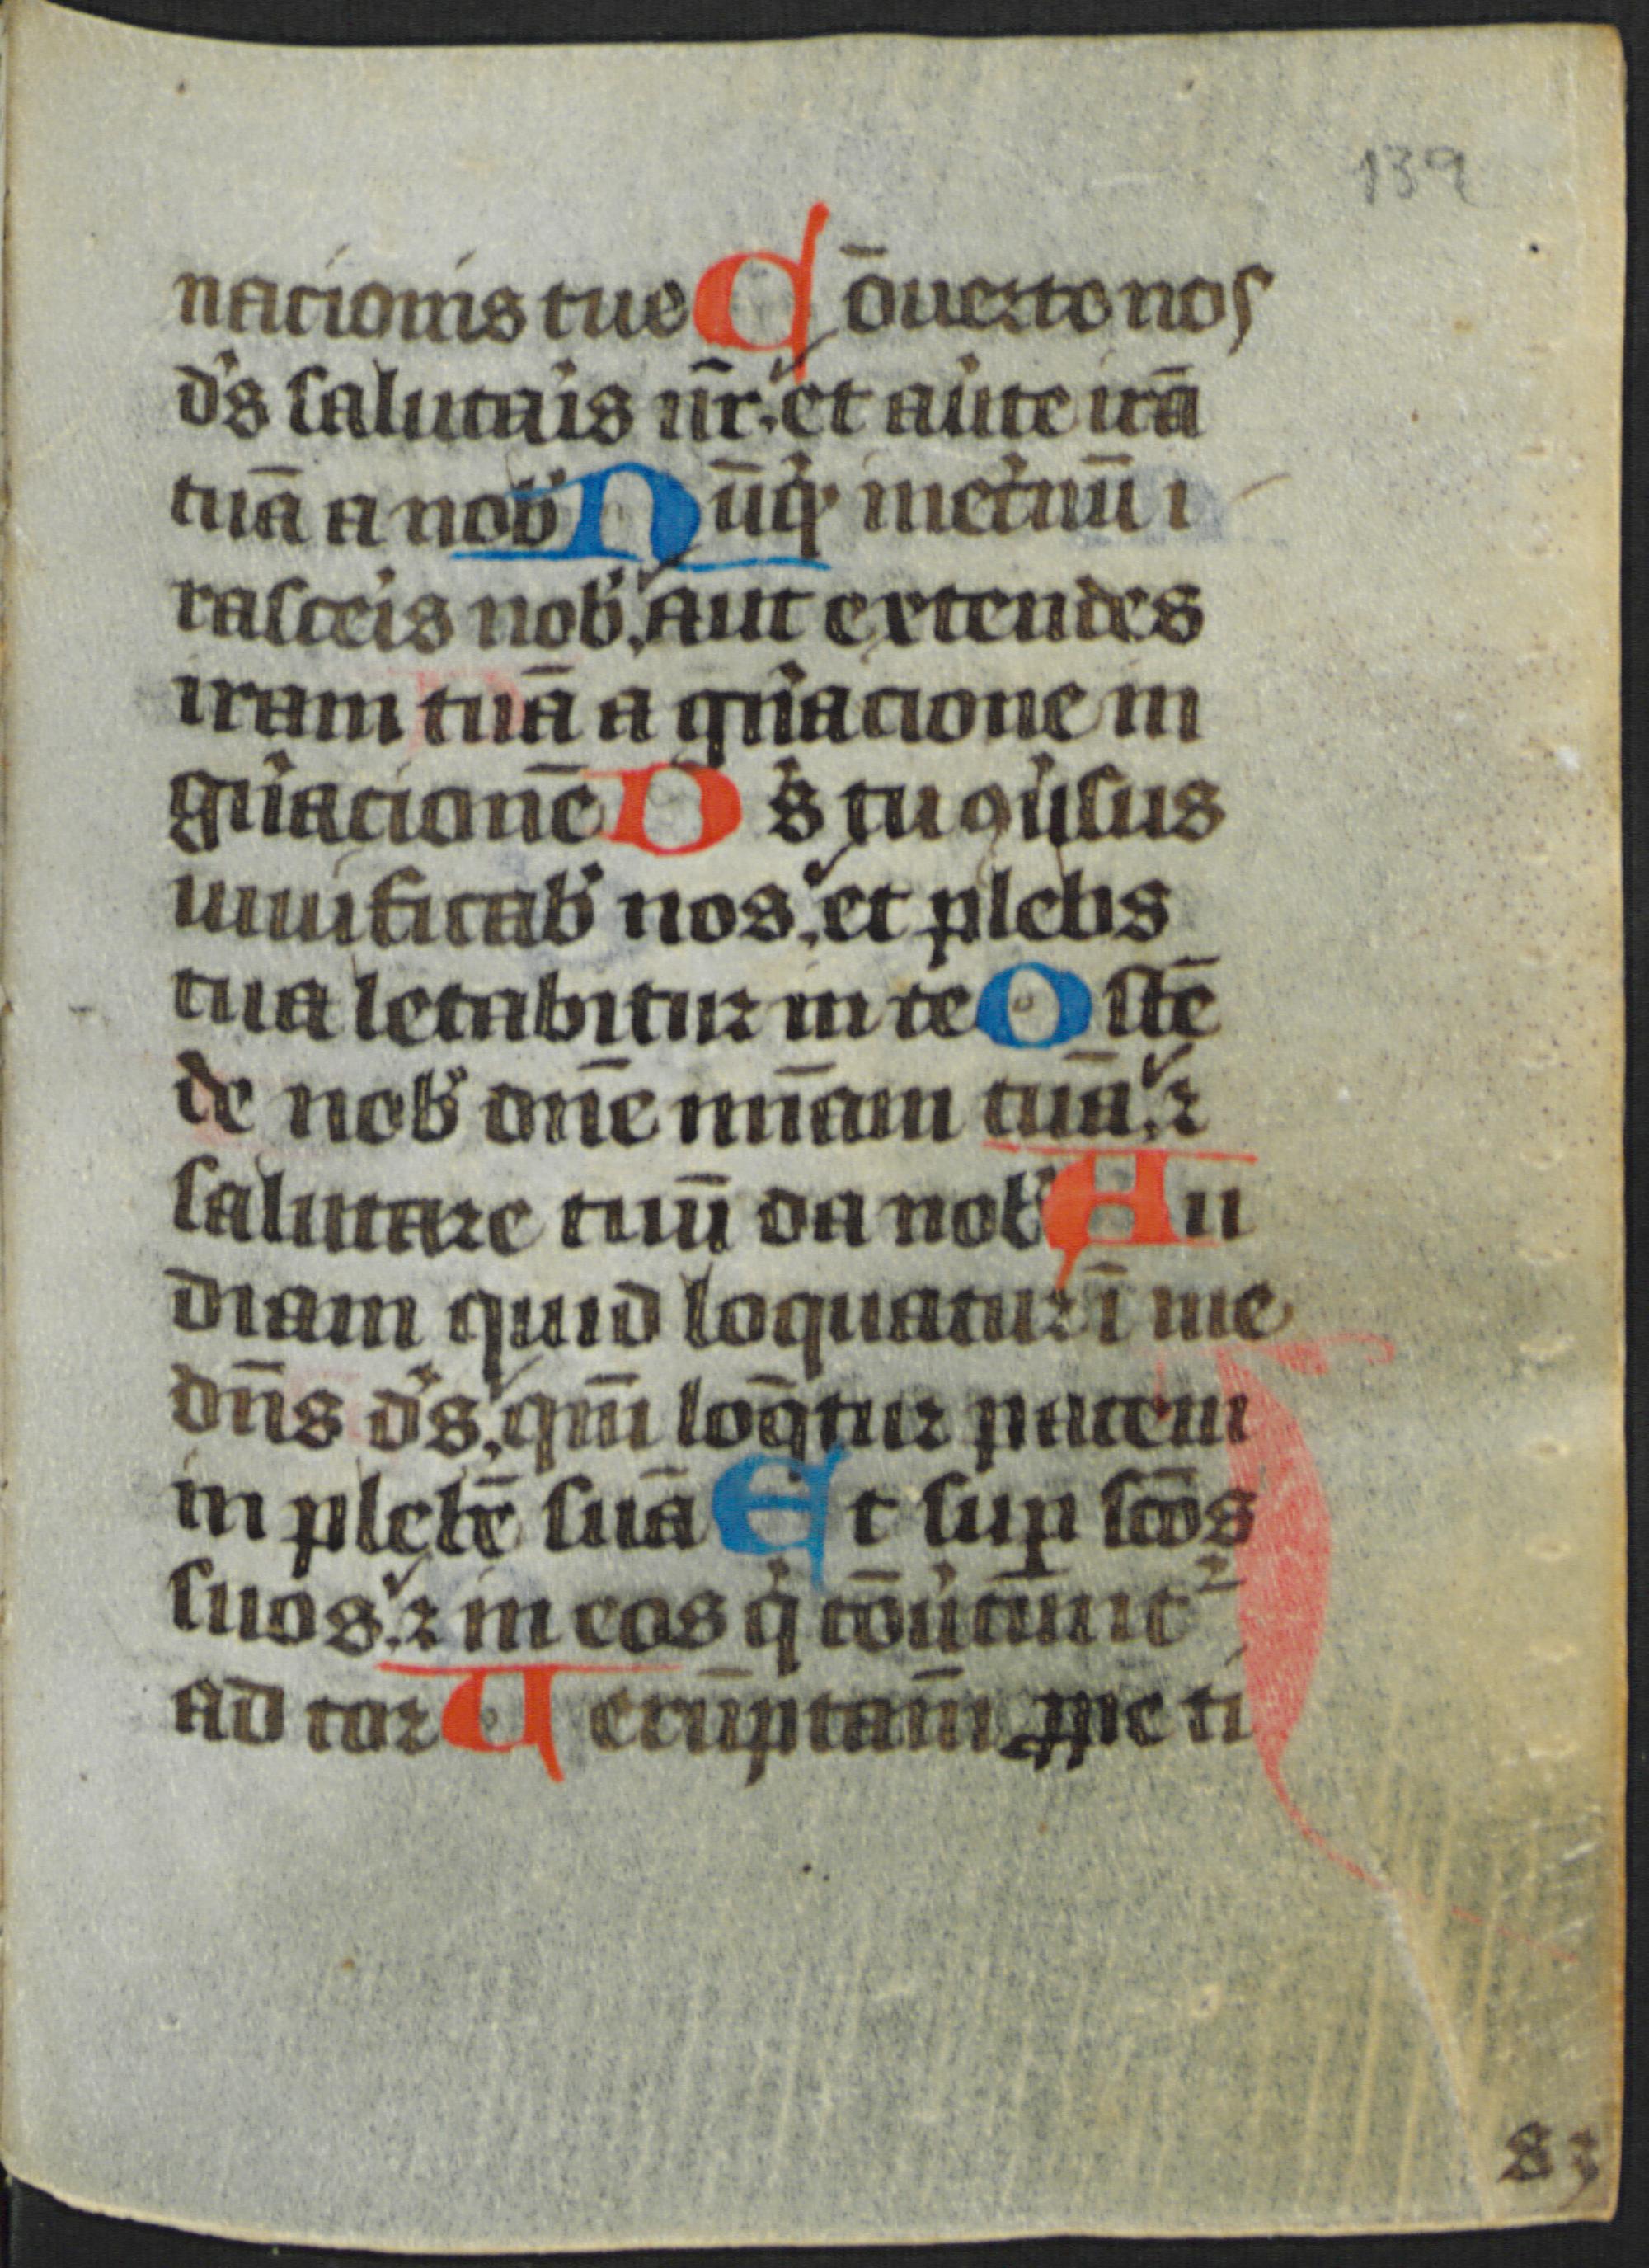 139
nacionis tue Cōuerte nos
ds salutais nr̄ et aūte irā
tuā a nob Nūq̇ ineternū i
rasceis nob aut extendes
iram tuā a gn̄acione in
gn̄acionē Ds tu ꝯūsus
uiuificab nos et plebs
tua letabitur in te Ostē
de nob dn̄e mīam tuā ꝛ
salutare tuū da nob Au
diam quid loquatur ī me
dn̄s ds qm̄ loq̄tur pacem
in plebē suā Et suꝑ sc̄os
suos ꝛ in eos q̇ cōūtunt᷑
ad cor Uerūptam̄ ꝓpe ti
83